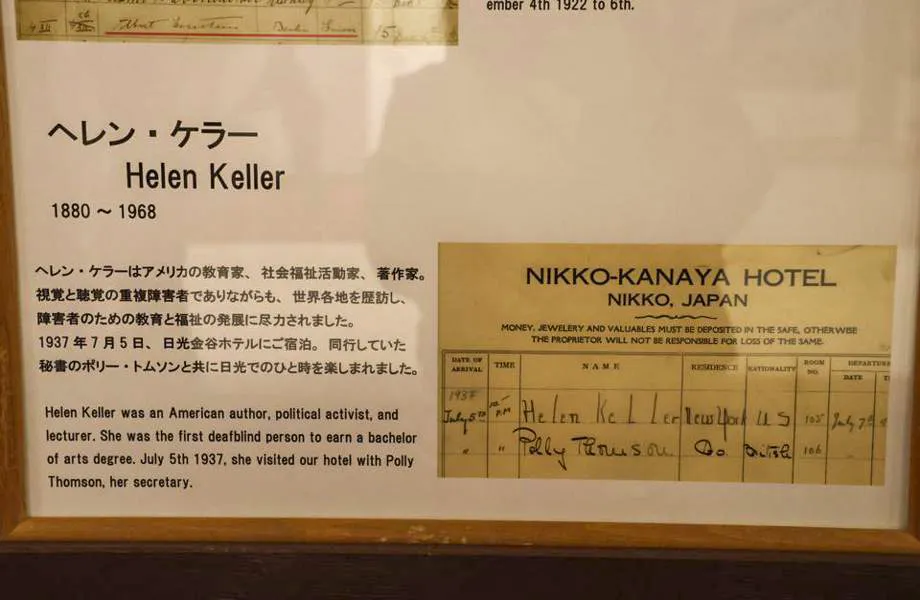 Albert Einstein Berlin
15
ember 4th 1922 to 6th.
ヘレン・ケラー
Helen Keller
1880 ～ 1968
ヘレン・ケラーはアメリカの教育家、社会福祉活動家、著作家。
視覚と聴覚の重複障害者でありながらも、世界各地を歴訪し、
障害者のための教育と福祉の発展に尽力されました。
1937年7月5日、日光金谷ホテルにご宿泊。同行していた
秘書のポリー・トムソンと共に日光でのひと時を楽しまれました。
Helen Keller was an American author, political activist, and
lecturer. She was the first deafblind person to earn a bachelor
of arts degree. July 5th 1937, she visited our hotel with Polly
Thomson, her secretary.
NIKKO-KANAYA HOTEL
NIKKO, JAPAN
MONEY, JEWELERY AND VALUABLES MUST BE DEPOSITED IN THE SAFE, OTHERWISE
THE PROPRIETOR WILL NOT BE RESPONSIBLE FOR LOSS OF THE SAME.
DATE OF ARRIVAL TIME NAME RESIDENCE NATIONALITY ROOM NO. DEPARTURE
DATE
1937
July 5th P.M Helen Keller New York U S 105 July 7th
" " Polly Thomson Do. British 106